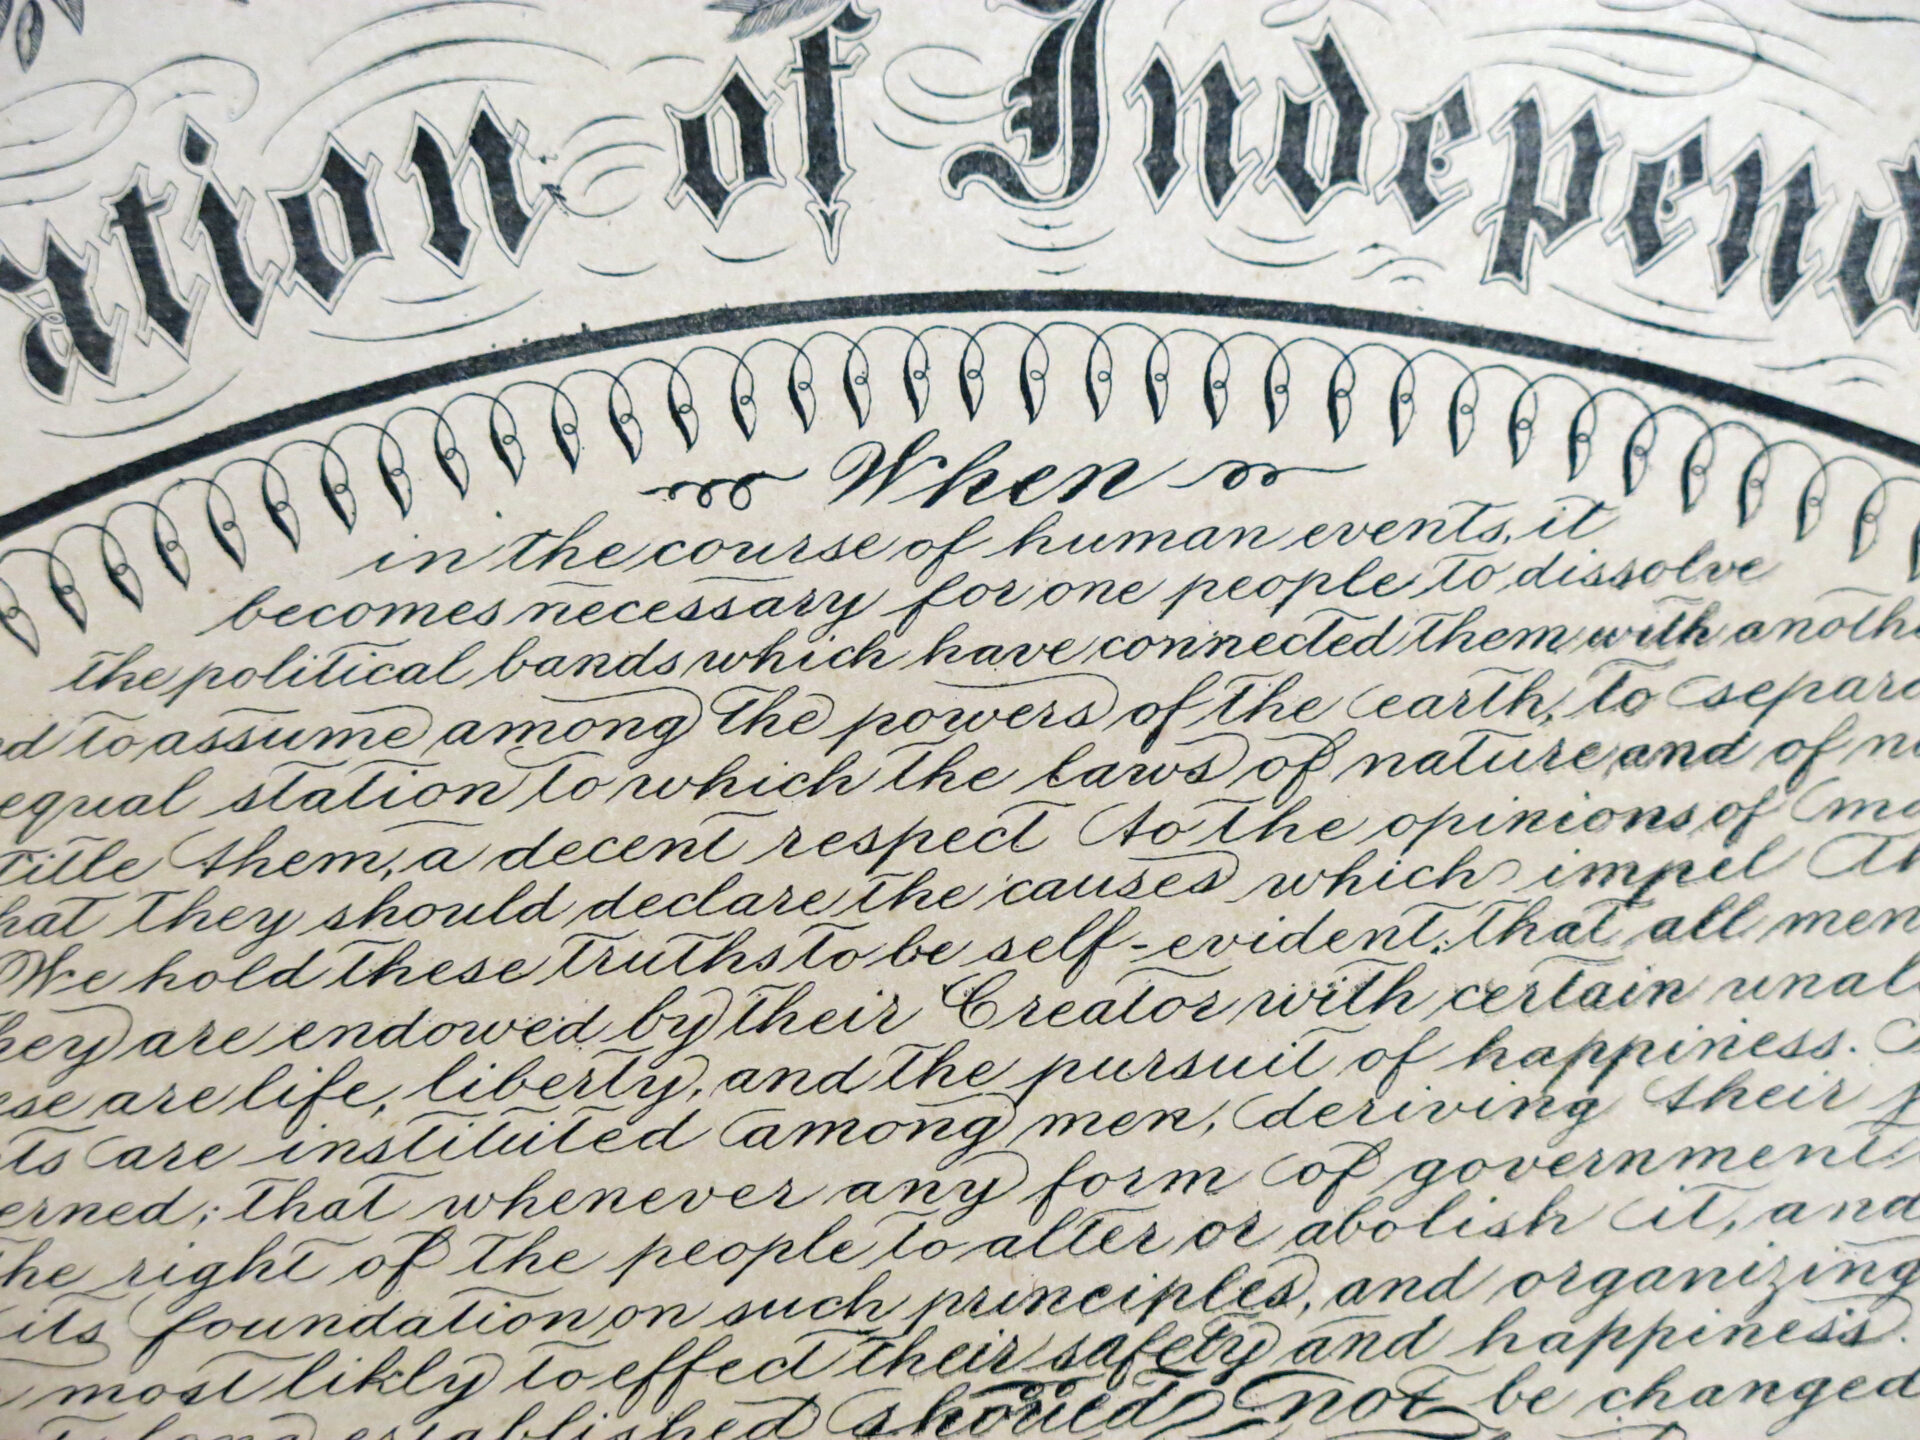 ation of Independ
When
in the course of human events, it
becomes necessary for one people to dissolve
the political bands which have connected them with anothe
d to assume among the powers of the earth, to separa
equal station to which the laws of nature and of na
title them, a decent respect to the opinions of ma
hat they should declare the causes which impel th
We hold these truths to be self-evident: that all men
hey are endowed by their Creator with certain unal
ese are life, liberty, and the pursuit of happiness.
ts are instituted among men, deriving their p
erned; that whenever any form of government
he right of the people to alter or abolish it, and
its foundation on such principles, and organizing
most likely to effect their safety and happiness.
long established should not be changed